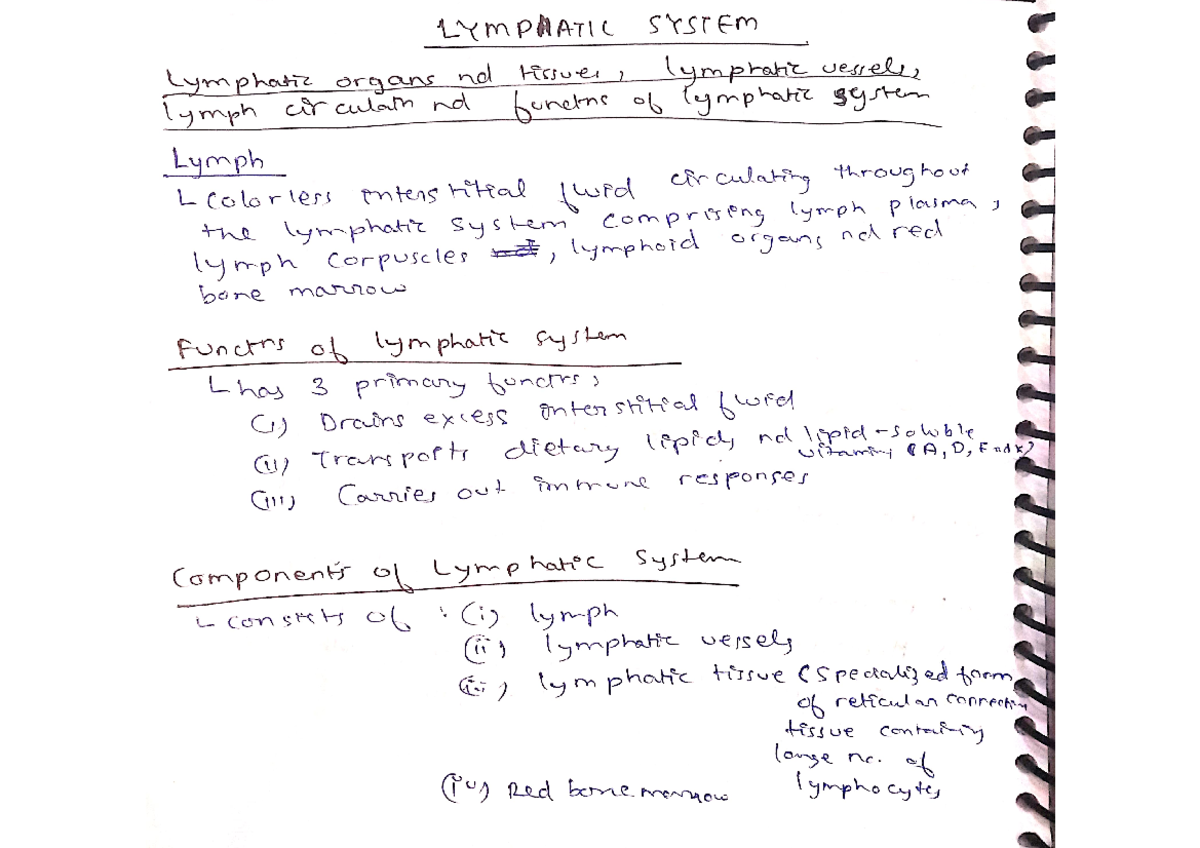 LYMPHATIC SYSTEM
Lymphatic organs nd tissues, lymphatic vessels,
lymph circulatn nd functns of lymphatic system
Lymph
↳ Colorless interstitial fluid circulating throughout
the lymphatic system comprising lymph plasma,
lymph corpuscles, lymphoid organs nd red
bone marrow
Functns of lymphatic system
↳ has 3 primary functns,
(i) Drains excess interstitial fluid
(ii) Transports dietary lipids nd lipid-soluble
vitamins (A, D, E nd K)
(iii) Carries out immune responses
Components of Lymphatic System
↳ consists of : (i) lymph
(ii) lymphatic vessels
(iii) lymphatic tissue (specialized form
of reticular connectin
tissue containing
large no. of
lymphocytes
(iv) Red bone marrow